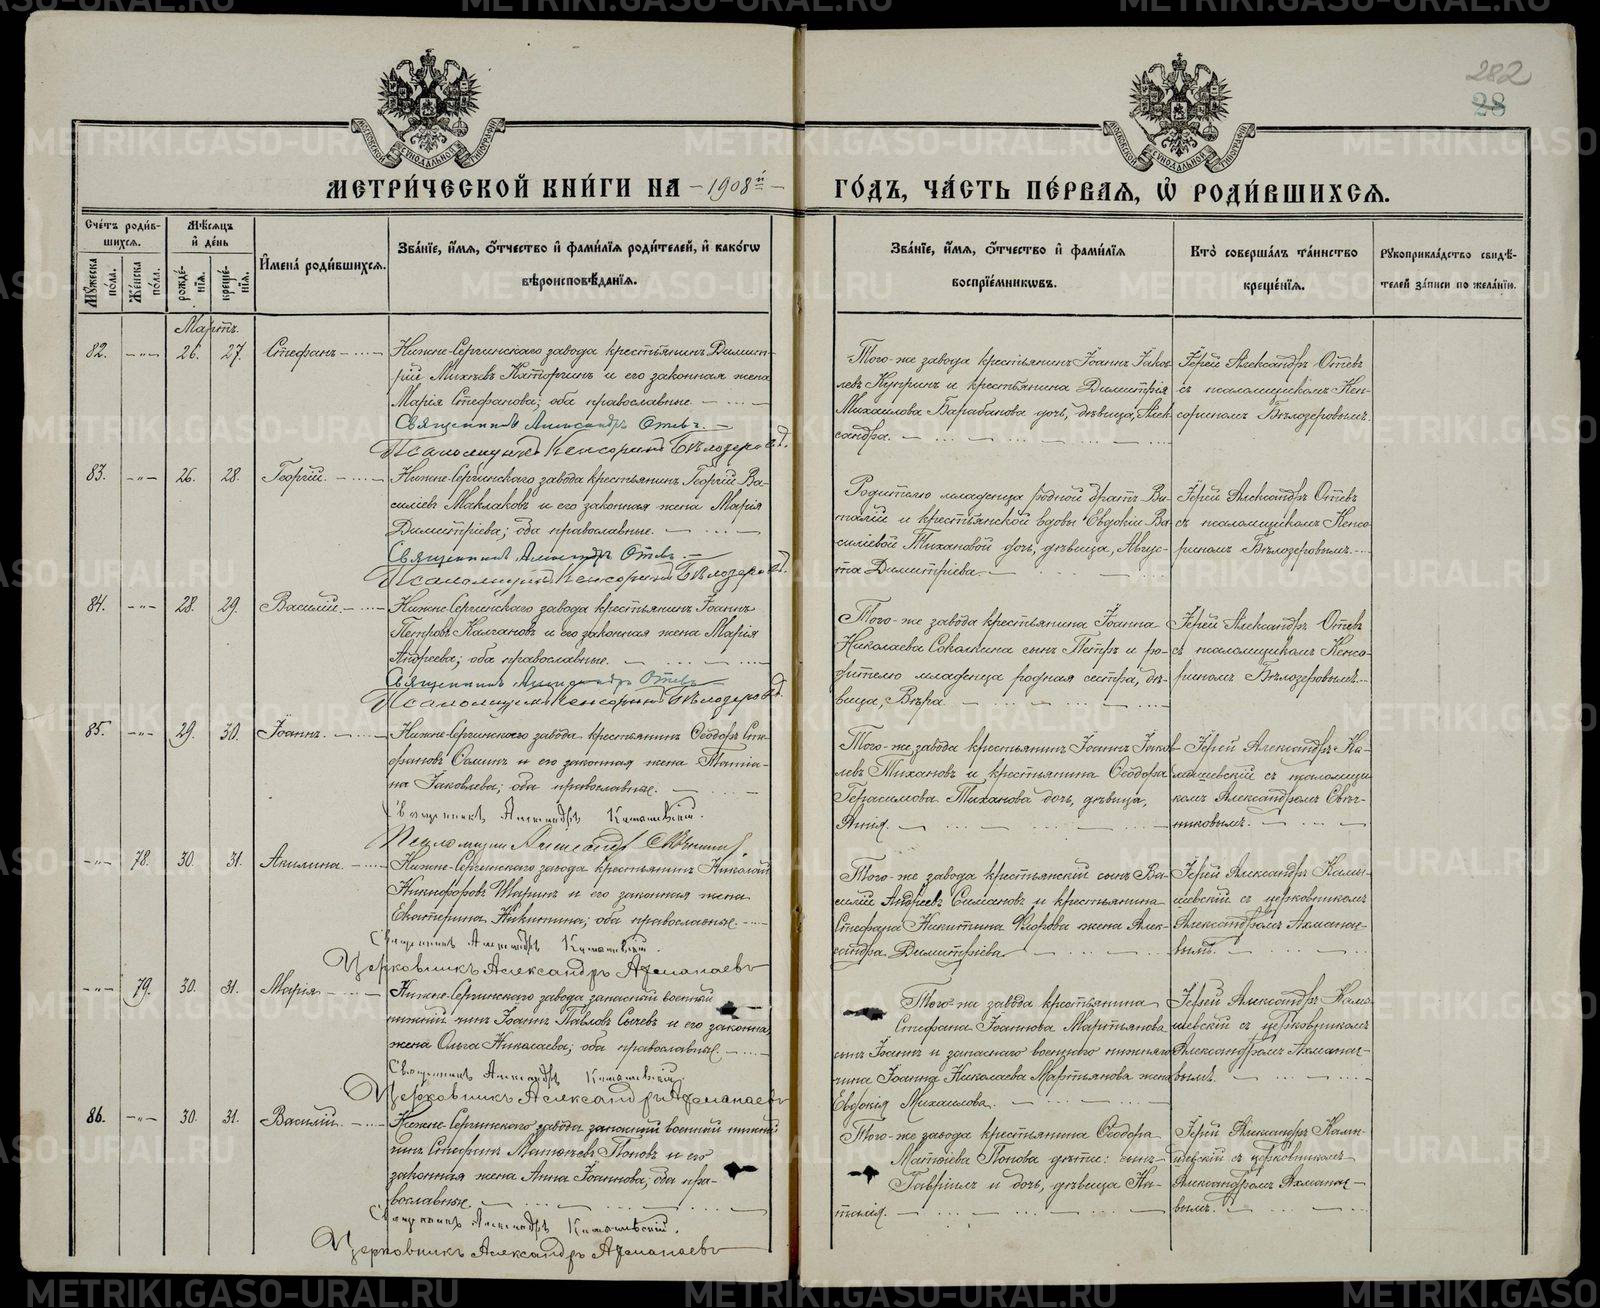 282
28
МОСКОВСКОЙ СУНОДАЛЬНОЙ ТИПОГРАФІИ
МОСКОВСКОЙ СУНОДАЛЬНОЙ ТИПОГРАФІИ
МЕТРИ́ЧЕСКОЙ КНИ́ГИ НА -1908й- ГО́ДЪ, ЧА́СТЬ ПЕ́РВАЯ, Ѡ РОДИ́ВШИХСЯ.
Сче́тъ роди́вшихся.
Мꙋ́жеска по́ла.
Же́нска по́ла.
Мѣ́сяцъ и де́нь
рожде́нія.
креще́нія.
И́мена̀ роди́вшихся.
Зва́ніе, и́мя, ѻ́тчество и фами́лія роди́телей, и како́гѡ вѣроисповѣ́данія.
Зва́ніе, и́мя, ѻ́тчество и фами́лія воспріе́мникѡвъ.
Кто̀ соверша́лъ та́инство креще́нія.
Рꙋкоприкла́дство свидѣ́телей за́писи по жела́нію.
Мартъ.
82. -"- 26. 27. Стефанъ
Нижне-Сергинскаго завода крестьянинъ Димитрій Михѣевъ Каторгинъ и его законная жена
Марія Стефанова; оба православные
Священникъ Александръ Отевъ.
Псаломщикъ Кенсоринъ Бѣлозеровъ.
Того-же завода крестьянинъ Іоаннъ Іаковлевъ Купринъ и крестьянина Димитрія
Михаилова Барабанова дочь, дѣвица, Александра.
Іерей Александръ Отевъ
съ псаломщикомъ Кенсориномъ Бѣлозеровымъ.
83. -"- 26. 28. Георгій.
Нижне-Сергинскаго завода крестьянинъ Георгій Василіевъ Маклаковъ и его законная жена Марія
Димитріева; оба православные.
Священникъ Александръ Отевъ.
Псаломщикъ Кенсоринъ Бѣлозеровъ.
Родителю младенца родной братъ Виталій и крестьянской вдовы Евдокіи Василіевой Тихановой дочь, дѣвица, Августа Димитріева.
Іерей Александръ Отевъ
съ псаломщикомъ Кенсориномъ Бѣлозеровымъ.
84. -"- 28. 29. Василій.
Нижне-Сергинскаго завода крестьянинъ Іоаннъ
Петровъ Калгановъ и его законная жена Марія
Андреева; оба православные.
Священникъ Александръ Отевъ
Псаломщикъ Кенсоринъ Бѣлозеровъ.
Того-же завода крестьянина Іоанна
Николаева Сокотина сынъ Петръ и родителю младенца родная сестра, дѣвица, Вѣра.
Іерей Александръ Отевъ
съ псаломщикомъ Кенсориномъ Бѣлозеровымъ.
85. -"- 29. 30. Іоаннъ.
Нижне-Сергинскаго завода крестьянинъ Ѳеодоръ Стефановъ и его законная жена Татіана Іаковлева; оба православные.
Священникъ Александръ Камашевскій.
Псаломщикъ Александръ
Того-же завода крестьянинъ Іоаннъ Іаковлевъ Тихановъ и крестьянина Ѳеодора
Герасимова Тиханова дочь, дѣвица,
Іерей Александръ Камашевскій съ псаломщикомъ Александромъ
-"- 78. 30. 31. Акилина.
Нижне-Сергинскаго завода крестьянинъ Николай
Никифоровъ и его законная жена
Екатерина Никитина; оба православные.
Священникъ Александръ Камашевскій.
Церковникъ Александръ Ахманаевъ
Того-же завода крестьянскій сынъ Василій Андреевъ Симановъ и крестьянина
Стефана Никитина жена Александра Димитріева.
Іерей Александръ Камашевскій съ церковникомъ
Александромъ Ахманаевымъ.
-"- 79. 30. 31. Марія
Нижне-Сергинскаго завода запасный военный
нижній чинъ Іоаннъ Павловъ Сычевъ и его законная
жена Ольга Николаева; оба православные.
Священникъ Александръ Камашевскій
Церковникъ Александръ Ахманаевъ
Того-же завода крестьянина
Стефана Іоаннова Мартьянова
сынъ Іоаннъ и запаснаго военнаго нижняго
чина Іоанна Николаева Мартьянова жена
Евдокія Михаилова.
Іерей Александръ Камашевскій съ церковникомъ
Александромъ Ахманаевымъ.
86. -"- 30. 31. Василій.
Нижне-Сергинскаго завода запасный военный нижній
чинъ Стефанъ Матѳіевъ Поповъ и его
законная жена Анна Іоаннова; оба православные.
Священникъ Александръ Камашевскій.
Церковникъ Александръ Ахманаевъ
Того-же завода крестьянина Ѳеодора
Матѳіева Попова дѣти: сынъ
Гавріилъ и дочь, дѣвица Наталія.
Іерей Александръ Камашевскій съ церковникомъ
Александромъ Ахманаевымъ.
METRIKI.GASO-URAL.RU